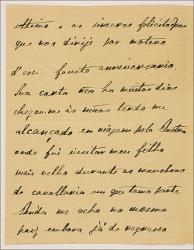 e as sinceras felicitações
que nos dirije por motivo
d'esse fausto anniversario
Sua carta tem ha muitos dias
chegou-me ás mãos tendo me
alcançado em viagem pela
onde fui visitar meu filho
mais velho durante as manobras
de cavallaria em que toma parte
Ainda me acho no mesmo
paiz embora já de regresso